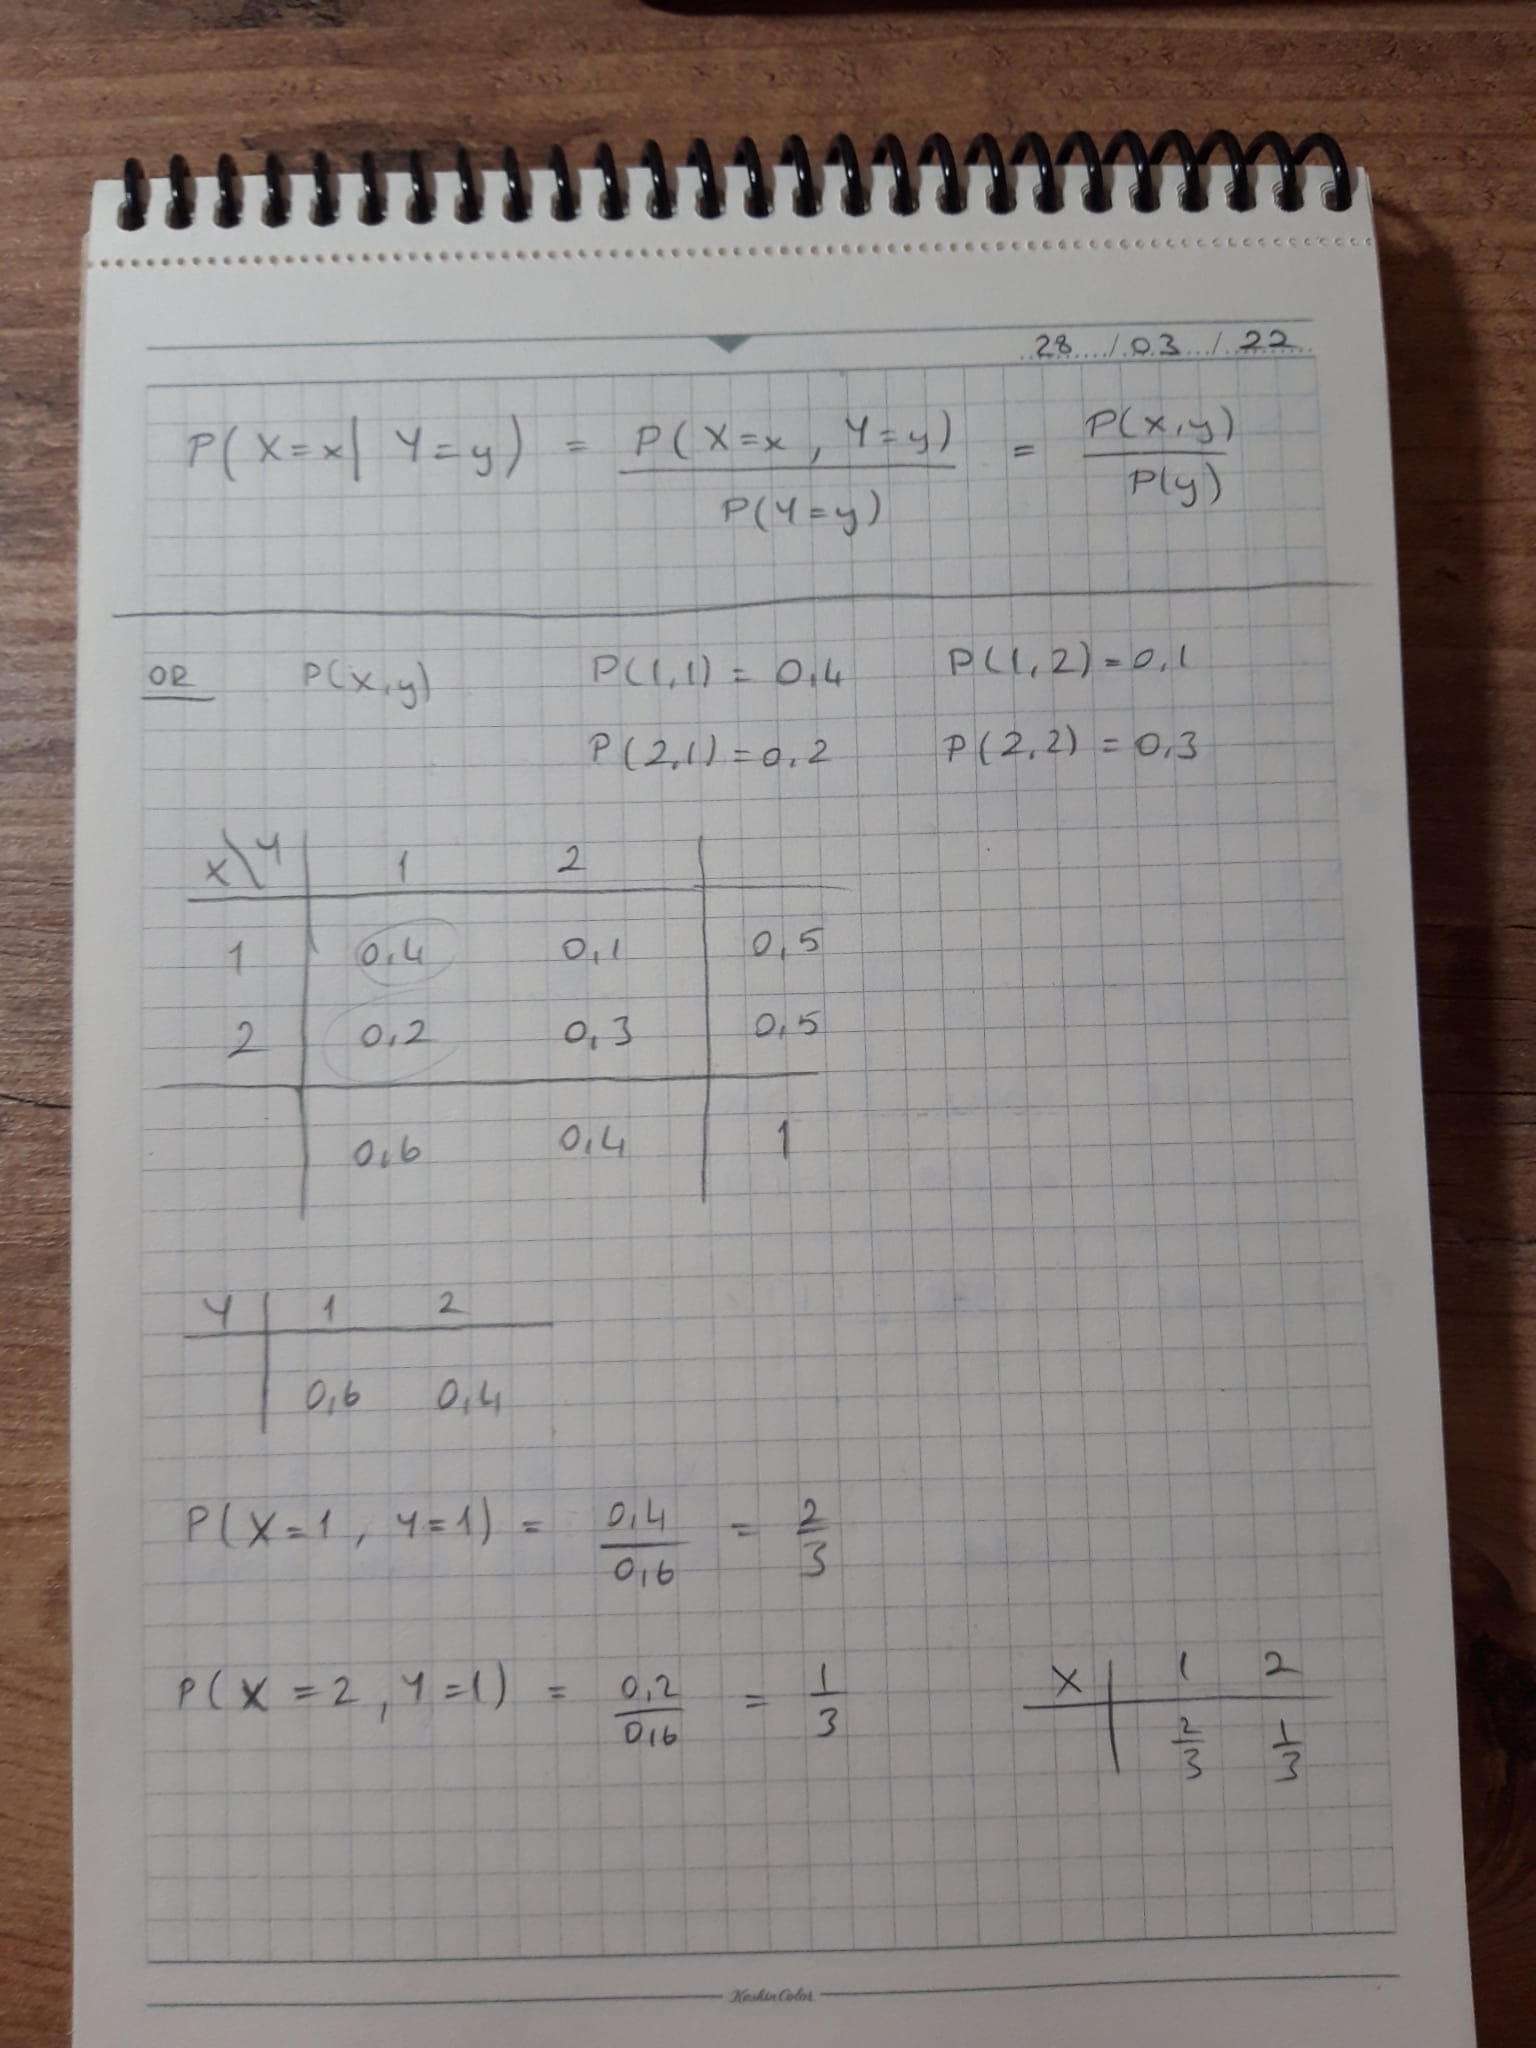 28 / 03 / 22
P(X=x | Y=y) = P(X=x, Y=y) / P(Y=y) = P(x,y) / P(y)
OR P(x,y) P(1,1) = 0,4 P(1,2) = 0,1
P(2,1) = 0,2 P(2,2) = 0,3
X\Y 1 2
1 0,4 0,1 0,5
2 0,2 0,3 0,5
0,6 0,4 1
Y 1 2
0,6 0,4
P(X=1, Y=1) = 0,4 / 0,6 = 2/3
P(X=2, Y=1) = 0,2 / 0,6 = 1/3
X 1 2
2/3 1/3
KeskinColor